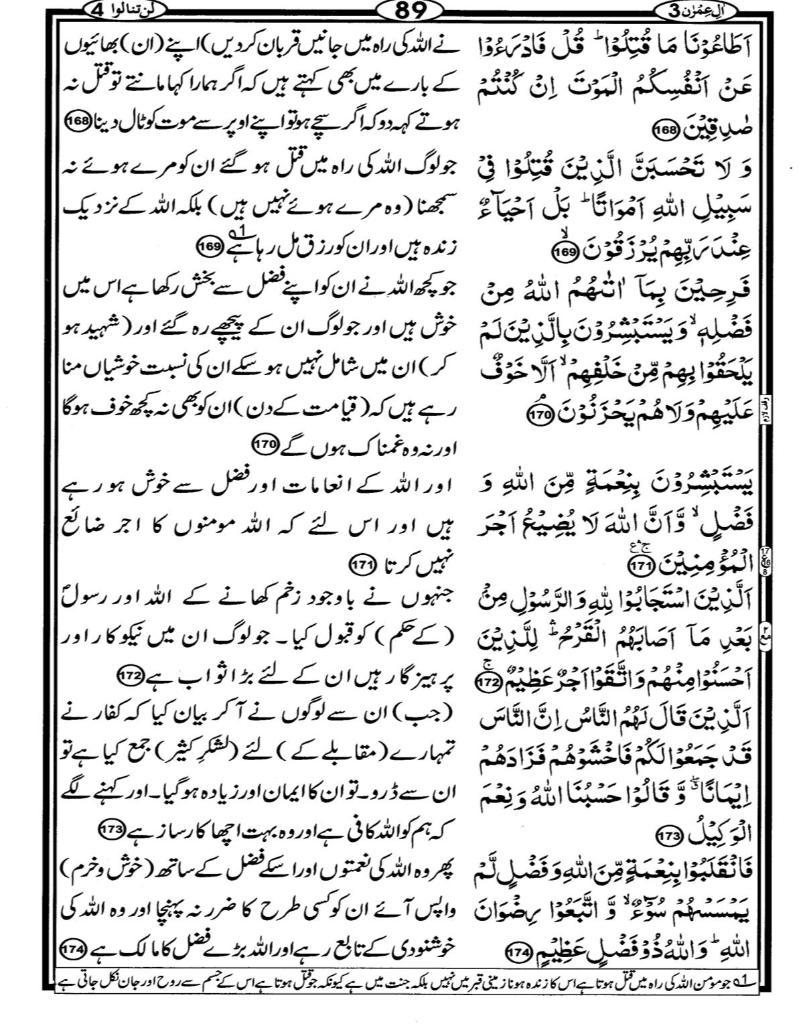 اٰلِ عِمْرٰن 3
89
لن تنالوا 4
اَطَاعُوْنَا مَا قُتِلُوْا ؕ قُلْ فَادْرَءُوْا
عَنْ اَنْفُسِكُمُ الْمَوْتَ اِنْ كُنْتُمْ
صٰدِقِيْنَ 168
وَ لَا تَحْسَبَنَّ الَّذِيْنَ قُتِلُوْا فِيْ
سَبِيْلِ اللّٰهِ اَمْوَاتًا ؕ بَلْ اَحْيَآءٌ
عِنْدَ رَبِّهِمْ يُرْزَقُوْنَ ۙ 169
فَرِحِيْنَ بِمَآ اٰتٰىهُمُ اللّٰهُ مِنْ
فَضْلِهٖ ۙ وَ يَسْتَبْشِرُوْنَ بِالَّذِيْنَ لَمْ
يَلْحَقُوْا بِهِمْ مِّنْ خَلْفِهِمْ ۙ اَلَّا خَوْفٌ
عَلَيْهِمْ وَلَا هُمْ يَحْزَنُوْنَ ۘ 170
يَسْتَبْشِرُوْنَ بِنِعْمَةٍ مِّنَ اللّٰهِ وَ
فَضْلٍ ۙ وَّ اَنَّ اللّٰهَ لَا يُضِيْعُ اَجْرَ
الْمُؤْمِنِيْنَ 171
اَلَّذِيْنَ اسْتَجَابُوْا لِلّٰهِ وَ الرَّسُوْلِ مِنْۢ
بَعْدِ مَآ اَصَابَهُمُ الْقَرْحُ ؕ لِلَّذِيْنَ
اَحْسَنُوْا مِنْهُمْ وَ اتَّقَوْا اَجْرٌ عَظِيْمٌ ۚ 172
اَلَّذِيْنَ قَالَ لَهُمُ النَّاسُ اِنَّ النَّاسَ
قَدْ جَمَعُوْا لَكُمْ فَاخْشَوْهُمْ فَزَادَهُمْ
اِيْمَانًا ۖۗ وَّ قَالُوْا حَسْبُنَا اللّٰهُ وَ نِعْمَ
الْوَكِيْلُ 173
فَانْقَلَبُوْا بِنِعْمَةٍ مِّنَ اللّٰهِ وَ فَضْلٍ لَّمْ
يَمْسَسْهُمْ سُوْٓءٌ ۙ وَّ اتَّبَعُوْا رِضْوَانَ
اللّٰهِ ؕ وَ اللّٰهُ ذُوْ فَضْلٍ عَظِيْمٍ 174
نے اللہ کی راہ میں جانیں قربان کر دیں) اپنے (ان) بھائیوں
کے بارے میں بھی کہتے ہیں کہ اگر ہمارا کہا مانتے تو قتل نہ
ہوتے کہہ دو کہ اگر سچے ہو تو اپنے اوپر سے موت کو ٹال دینا 168
جو لوگ اللہ کی راہ میں قتل ہو گئے ان کو مرے ہوئے نہ
سمجھنا (وہ مرے ہوئے نہیں ہیں) بلکہ اللہ کے نزدیک
زندہ ہیں اور ان کو رزق مل رہا ہے 1 169
جو کچھ اللہ نے ان کو اپنے فضل سے بخش رکھا ہے اس میں
خوش ہیں اور جو لوگ ان کے پیچھے رہ گئے اور (شہید ہو
کر) ان میں شامل نہیں ہو سکے ان کی نسبت خوشیاں منا
رہے ہیں کہ (قیامت کے دن) ان کو بھی نہ کچھ خوف ہو گا
اور نہ وہ غمناک ہوں گے 170
اور اللہ کے انعامات اور فضل سے خوش ہو رہے
ہیں اور اس لئے کہ اللہ مومنوں کا اجر ضائع
نہیں کرتا 171
جنہوں نے باوجود زخم کھانے کے اللہ اور رسولؐ
(کے حکم) کو قبول کیا۔ جو لوگ ان میں نیکوکار اور
پرہیزگار ہیں ان کے لئے بڑا ثواب ہے 172
(جب) ان سے لوگوں نے آ کر بیان کیا کہ کفار نے
تمہارے (مقابلے کے) لئے (لشکرِ کثیر) جمع کیا ہے تو
ان سے ڈرو۔ تو ان کا ایمان اور زیادہ ہو گیا۔ اور کہنے لگے
کہ ہم کو اللہ کافی ہے اور وہ بہت اچھا کارساز ہے 173
پھر وہ اللہ کی نعمتوں اور اسکے فضل کے ساتھ (خوش و خرم)
واپس آئے ان کو کسی طرح کا ضرر نہ پہنچا اور وہ اللہ کی
خوشنودی کے تابع رہے اور اللہ بڑے فضل کا مالک ہے 174
1 جو مومن اللہ کی راہ میں قتل ہوتا ہے اس کا زندہ ہونا زمینی قبر میں نہیں بلکہ جنت میں ہے کیونکہ جو قتل ہوتا ہے اس کے جسم سے روح اور جان نکل جاتی ہے